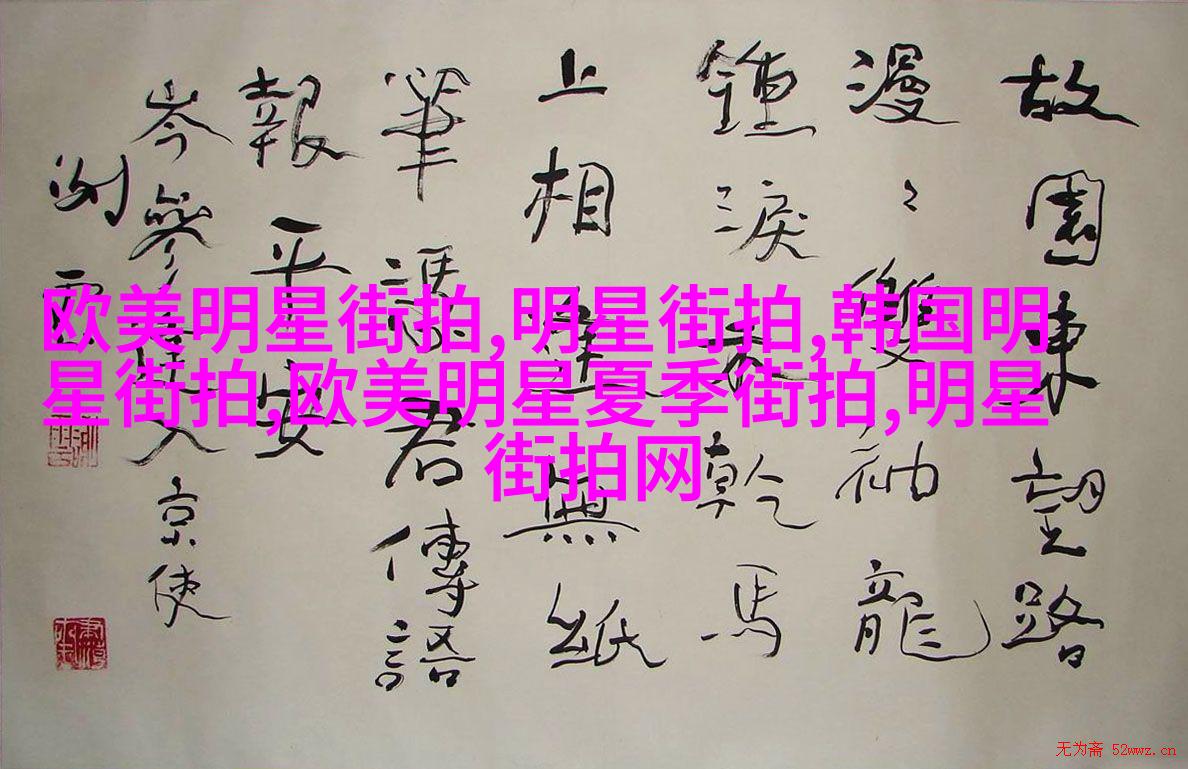 故園東望路
漫々雙袖龍
鍾淚不乾馬
上相逢無紙
筆憑君傳語
報平安
岑參逢入京使
欧美明星街拍,明星街拍,韩国明
星街拍,欧美明星夏季街拍,明星
街拍网
无为斋 52wwz.cn